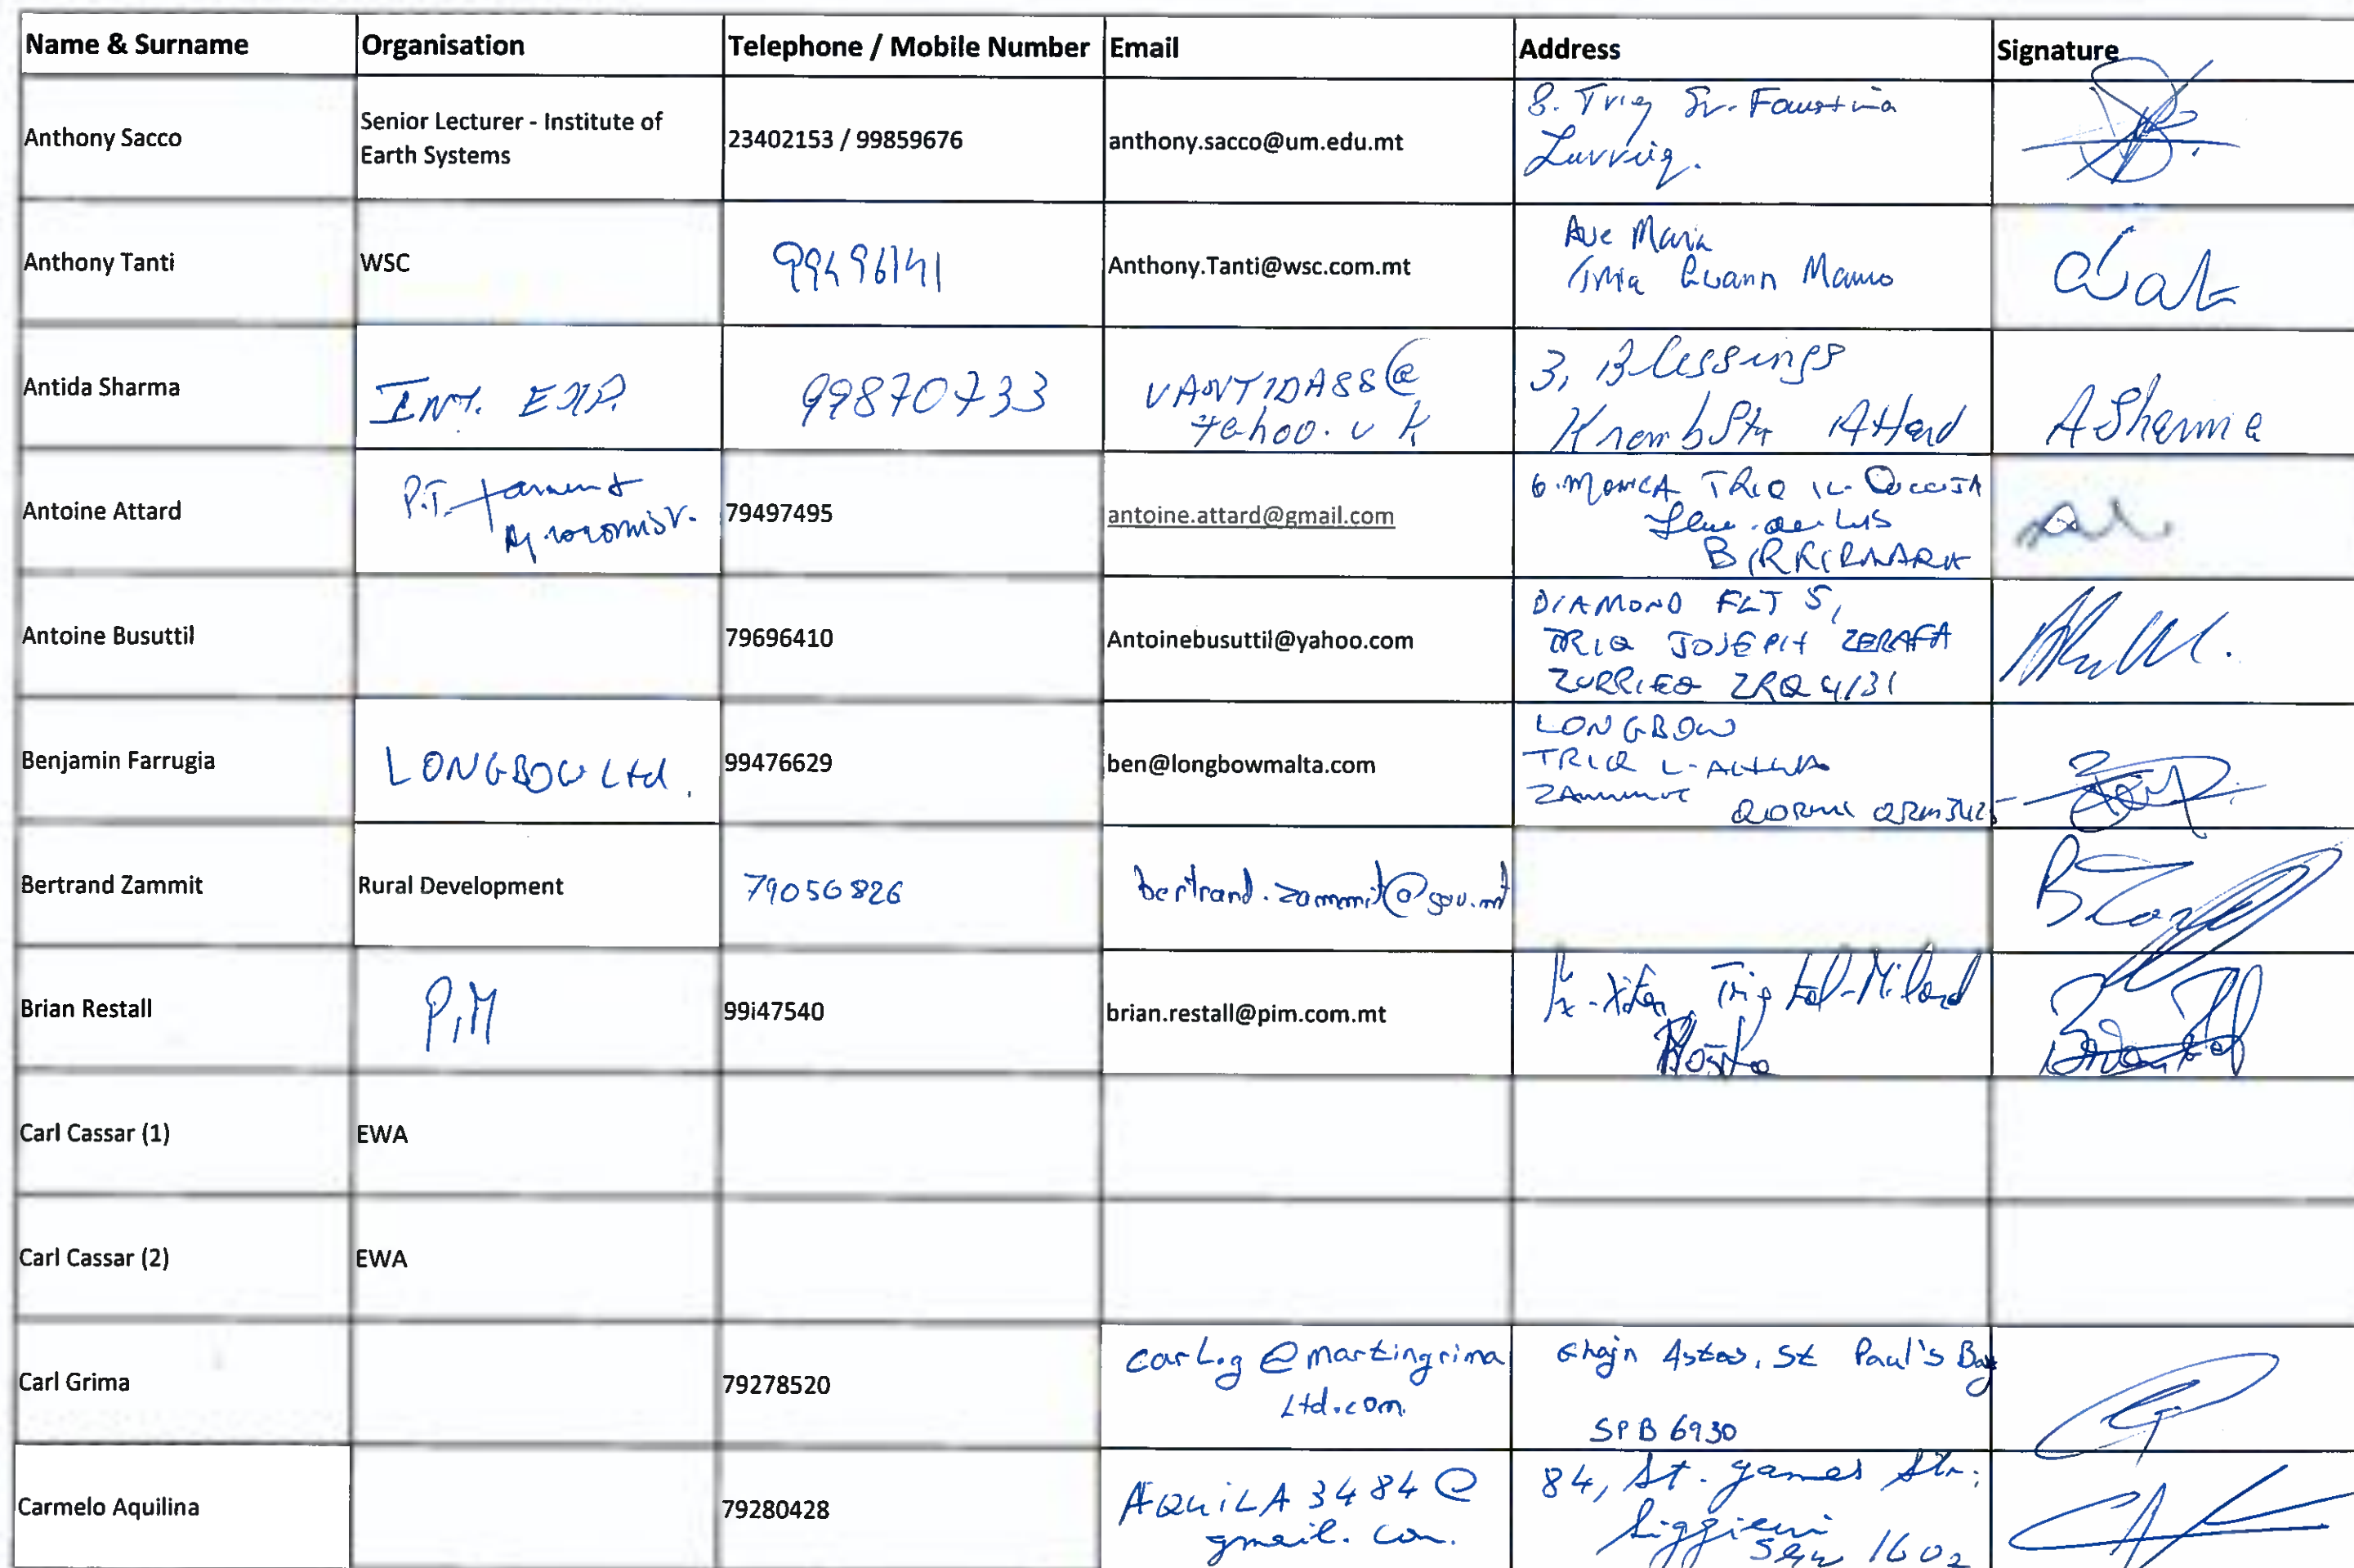 Name & Surname Organisation Telephone / Mobile Number Email Address Signature
Anthony Sacco
Senior Lecturer - Institute of
Earth Systems
23402153 / 99859676
anthony.sacco@um.edu.mt
8. Triq Sr. Faustina
Anthony Tanti
WSC
99496141
Anthony.Tanti@wsc.com.mt
Ave Maria
Mamo
Antida Sharma
INT. EXP.
99870733
VANTIDA88@
yahoo. u k
3, Blessings
Attard
A Sharma
Antoine Attard
P.T.
Agronomist.
79497495
antoine.attard@gmail.com
6. MONICA TRIQ IL-
BIRKIRKARA
Antoine Busuttil
79696410
Antoinebusuttil@yahoo.com
DIAMOND FLT 5,
TRIQ JOSEPH ZERAFA
ZURRIEQ ZRQ 4131
Benjamin Farrugia
LONGBOW Ltd.
99476629
ben@longbowmalta.com
LONGBOW
TRIQ L-
QORMI
Bertrand Zammit
Rural Development
79056826
bertrand.zammit@gov.mt
Brian Restall
P.M
99i47540
brian.restall@pim.com.mt
Triq tal-Milord
Mosta
Carl Cassar (1)
EWA
Carl Cassar (2)
EWA
Carl Grima
79278520
carl.g@martingrima
Ltd.com.
Ghajn Astas, St Paul's Bay
SPB 6930
Carmelo Aquilina
79280428
AQUILA3484@
gmail.com.
84, St. James Str:
Siggiewi
1602